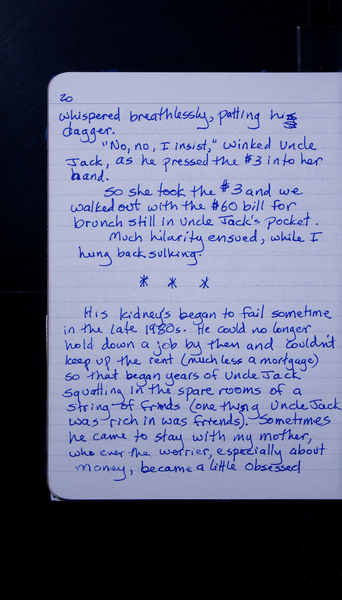 20
whispered breathlessly, patting his
dagger.
"No, no, I insist," winked Uncle
Jack, as he pressed the $3 into her
hand.
So she took the $3 and we
walked out with the $60 bill for
brunch still in Uncle Jack's pocket.
Much hilarity ensued, while I
hung back sulking.
* * *
His kidneys began to fail sometime
in the late 1980s. He could no longer
hold down a job by then and couldn't
keep up the rent (much less a mortgage)
so that began years of Uncle Jack
squatting in the spare rooms of a
string of friends (one thing Uncle Jack
was rich in was friends). Sometimes
he came to stay with my mother,
who ever the worrier, especially about
money, became a little obsessed